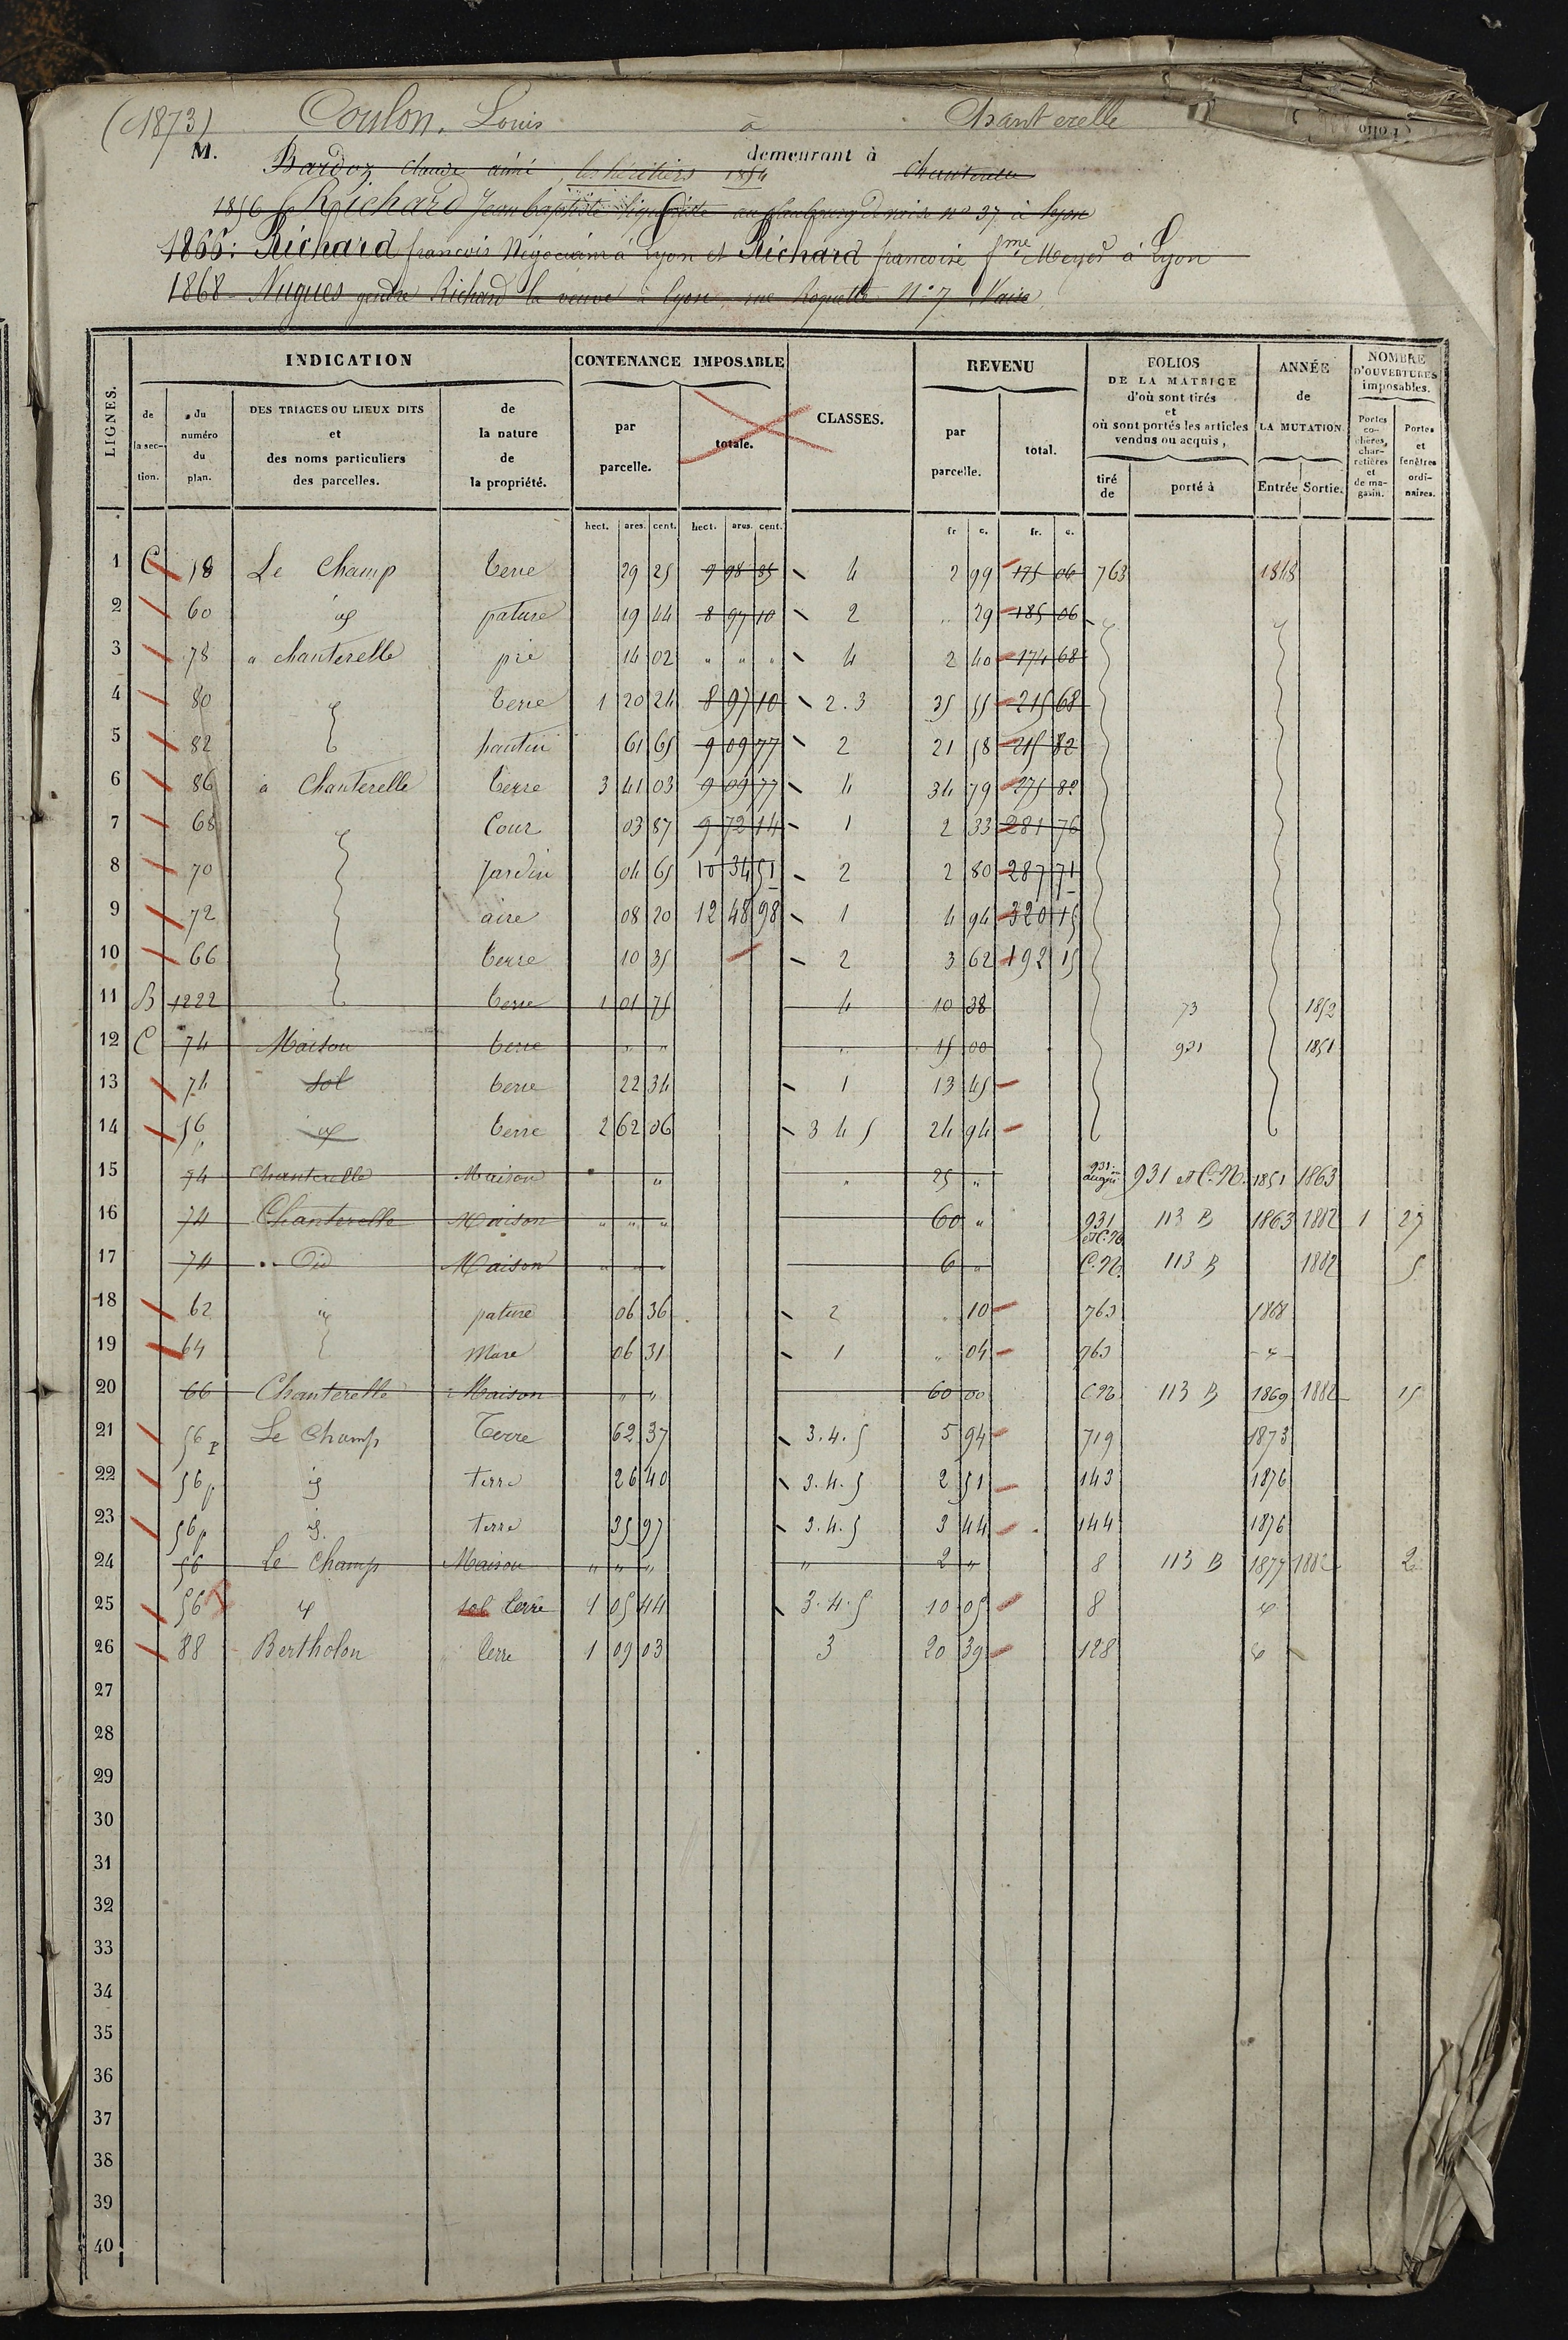 (1873) Coulon, Louis à Chanterelle
M. demeurant à
Bardoz Claude aimé, les héritiers 1854 Chanterelle
1856 Richard Jean baptiste au faubourg de vaise no 37 à Lyon
1866: Richard francois Négociant à Lyon et Richard francoise fme Meyer à Lyon
1868 Nugues gendre Richard la veuve à Lyon, rue Roquette N° 7 Vaise
LIGNES.
INDICATION
de la section.
du numéro du plan.
DES TRIAGES OU LIEUX DITS et des noms particuliers des parcelles.
de la nature de la propriété.
CONTENANCE IMPOSABLE
par parcelle.
totale.
CLASSES.
REVENU
par parcelle.
total.
FOLIOS DE LA MATRICE d'où sont tirés et où sont portés les articles vendus ou acquis,
tiré de
porté à
ANNÉE de LA MUTATION.
Entrée Sortie.
NOMBRE D'OUVERTURES imposables.
Portes cochères, charretières et de magasin.
Portes et fenêtres ordinaires.
hect. ares. cent. hect. ares. cent. fr c. fr. c.
1 C 58 Le Champ terre 29 25 9 98 35 4 2 99 175 06 763 1848
2 60 id pature 19 44 8 97 10 2 " 29 185 06
3 78 a chanterelle pré 14 02 " " " 4 2 40 174 68
4 80 terre 1 20 24 8 97 10 2.3 35 55 215 68
5 82 hautin 61 65 9 09 77 2 21 58 215 82
6 86 à Chanterelle terre 3 41 03 9 09 77 4 34 79 275 82
7 68 Cour 03 87 9 72 14 1 2 33 281 76
8 70 Jardin 04 65 10 34 51 2 2 80 287 71
9 72 aire 08 20 12 48 98 1 4 94 320 15
10 66 terre 10 35 2 3 62 192 15
11 B 1222 terre 1 01 75 4 10 38 73 1852
12 C 74 Maison terre " " " 15 00 931 1851
13 74 sol terre 22 34 1 13 45
14 56 id terre 2 62 06 3 4 5 24 94
15 74 Chanterelle Maison " " " 25 " 931 augm 931 et C.N. 1851 1863
16 74 Chanterelle Maison " " " 60 " 931 et C.N. 113 B 1863 1882 1 27
17 74 Did Maison " " " 6 " C.N. 113 B 1882 5
18 62 " pature 06 36 2 " 10 763 1868
19 64 Mare 06 31 1 " 04 763 "
20 66 Chanterelle Maison " " 60 00 CN 113 B 1869 1882 15
21 56 P Le Champ Terre 62 37 3.4.5 5 94 719 1873
22 56 p id terre 26 40 3.4.5 2 51 143 1876
23 56 p id terre 35 97 3.4.5 3 44 144 1876
24 56 Le Champ Maison " " " " 2 " 8 113 B 1877 1882 2
25 56 P id sol terre 1 05 44 3.4.5 10 05 8 id
26 88 Bertholon terre 1 09 03 3 20 39 128 id
27
28
29
30
31
32
33
34
35
36
37
38
39
40